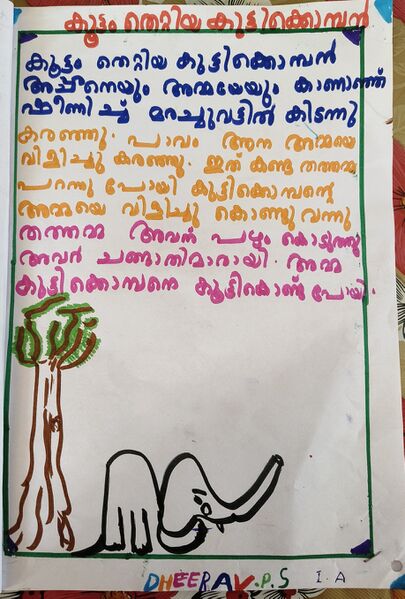 കൂട്ടം തെറ്റിയ കുട്ടിക്കൊമ്പൻ
കൂട്ടം തെറ്റിയ കുട്ടിക്കൊമ്പൻ
അച്ഛനെയും അമ്മയേയും കാണാഞ്ഞ്
ക്ഷീണിച്ച് മരച്ചുവട്ടിൽ കിടന്നു
കരഞ്ഞു. പാവം ആന അമ്മയെ
വിളിച്ചു കരഞ്ഞു. ഇത് കണ്ട തത്തമ്മ
പറന്നു പോയി കുട്ടിക്കൊമ്പന്റെ
അമ്മയെ വിളിച്ചു കൊണ്ടു വന്നു
തത്തമ്മ അവന് പഴം കൊടുത്തു
അവർ ചങ്ങാതിമാരായി. അമ്മ
കുട്ടിക്കൊമ്പനെ കൂട്ടികൊണ്ട് പോയി.
DHEERAV.P.S I.A